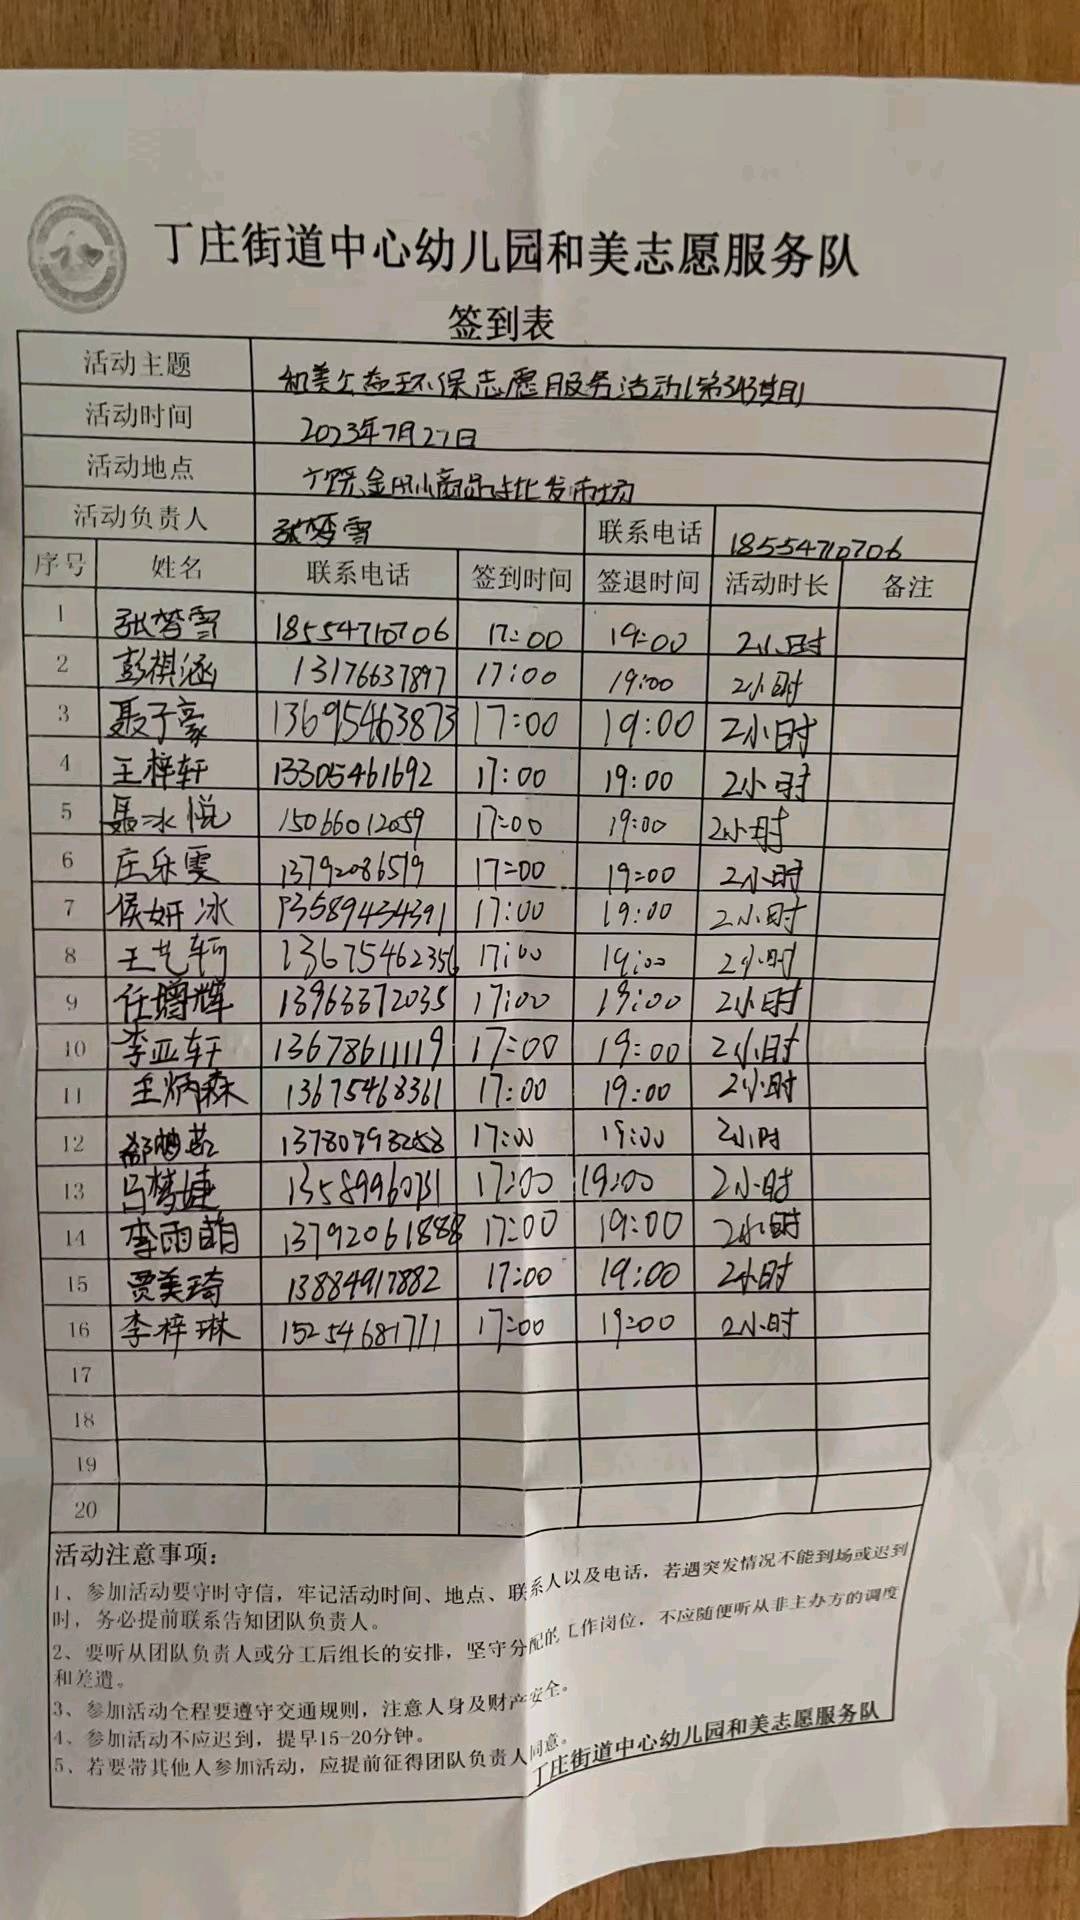 丁庄街道中心幼儿园和美志愿服务队
签到表
活动主题 和美公益环保志愿服务活动(第343期)
活动时间 2023年7月27日
活动地点 广饶金用小商品批发市场
活动负责人 张梦雪 联系电话 18554710706
序号 姓名 联系电话 签到时间 签退时间 活动时长 备注
1 张梦雪 18554710706 17:00 19:00 2小时
2 彭祺涵 13176637897 17:00 19:00 2小时
3 聂子豪 13695463873 17:00 19:00 2小时
4 王梓轩 13305461692 17:00 19:00 2小时
5 聂冰悦 15066012059 17:00 19:00 2小时
6 庄乐雯 13792086519 17:00 19:00 2小时
7 侯妍冰 13589434391 17:00 19:00 2小时
8 王艺轲 13675462356 17:00 19:00 2小时
9 任增辉 13963372035 17:00 19:00 2小时
10 李亚轩 13678611119 17:00 19:00 2小时
11 王炳森 13675468361 17:00 19:00 2小时
12 13780798258 17:00 19:00 2小时
13 吕梦婕 13589960731 17:00 19:00 2小时
14 李雨萌 13792061888 17:00 19:00 2小时
15 贾美琦 13884917882 17:00 19:00 2小时
16 李梓琳 15254681711 17:00 19:00 2小时
17
18
19
20
活动注意事项：
1、参加活动要守时守信，牢记活动时间、地点、联系人以及电话，若遇突发情况不能到场或迟到
时，务必提前联系告知团队负责人。
2、要听从团队负责人或分工后组长的安排，坚守分配的工作岗位，不应随便听从非主办方的调度
和差遣。
3、参加活动全程要遵守交通规则，注意人身及财产安全。
4、参加活动不应迟到，提早15-20分钟。
5、若要带其他人参加活动，应提前征得团队负责人同意。
丁庄街道中心幼儿园和美志愿服务队